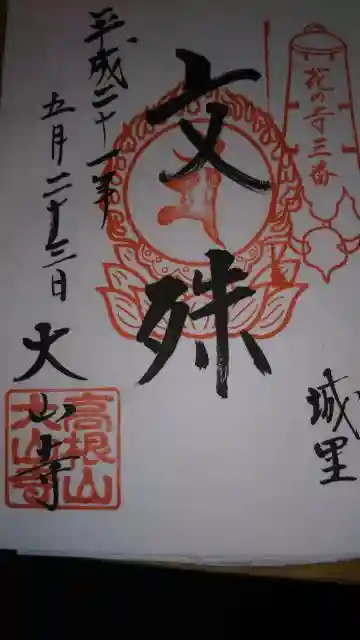 花の寺三番
城里
文殊
平成二十一年
五月二十三日
大山寺
高根山
大山寺